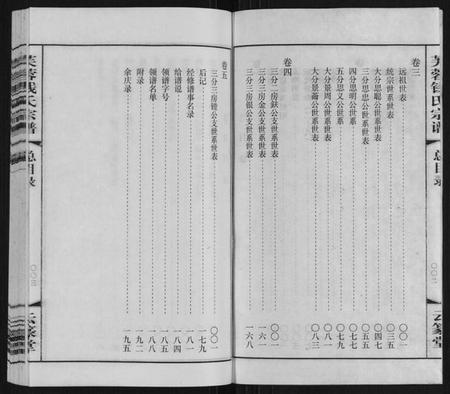 芙蓉钱氏宗谱
总目录
云篆堂
卷三
远祖世表……〇〇一
统宗世系世表……〇三五
大分思聪公世系世表……〇四七
三分思忠公世系世表……〇五五
四分思明公世系……〇七七
五分思义公世系……〇七九
大分景周公世系……〇八一
大分景斋公世系世表……〇八三
卷四
三分三房鈇公支世系世表……〇〇一
三分三房金公支世系世表……一六一
三分三房银公支世系世表……一六八
卷五
三分三房锉公支世系世表……〇〇一
后记……一七九
经修谱事名录……一八一
给谱说……一八四
领谱字号……一八八
领谱名单……一八八
附录……一九二
余庆录……一九五
芙蓉钱氏宗谱
总目录
云篆堂